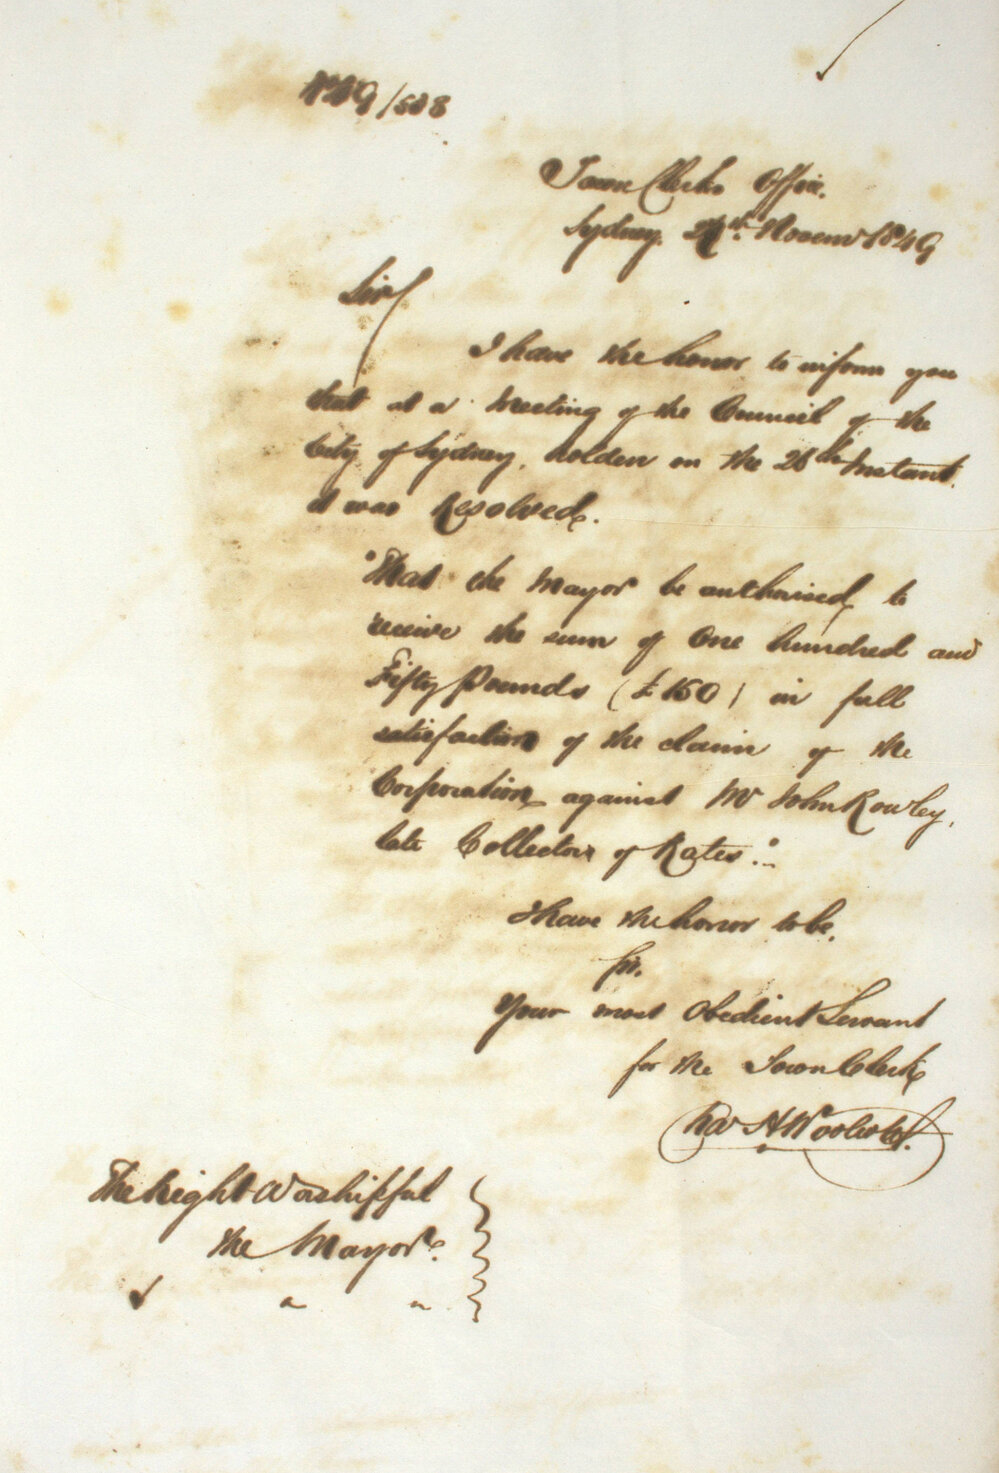 /508
Town Clerks Office.
Sydney. Novemr 1849
Sir
I have the honor to inform you
that at a Meeting of the Council of the
City of Sydney, holden on the 26th Instant.
it was Resolved.
"That the Mayor be authorised, to
receive the sum of One hundred and
Fifty Pounds (£150) in full
satisfaction of the claim of the
Corporation against Mr John Rowley,
late Collector of Rates."
I have the honor to be,
Sir.
Your most Obedient Servant
for the Town Clerk
Chas H Woolcott.
The Right Worshipful
the Mayor.